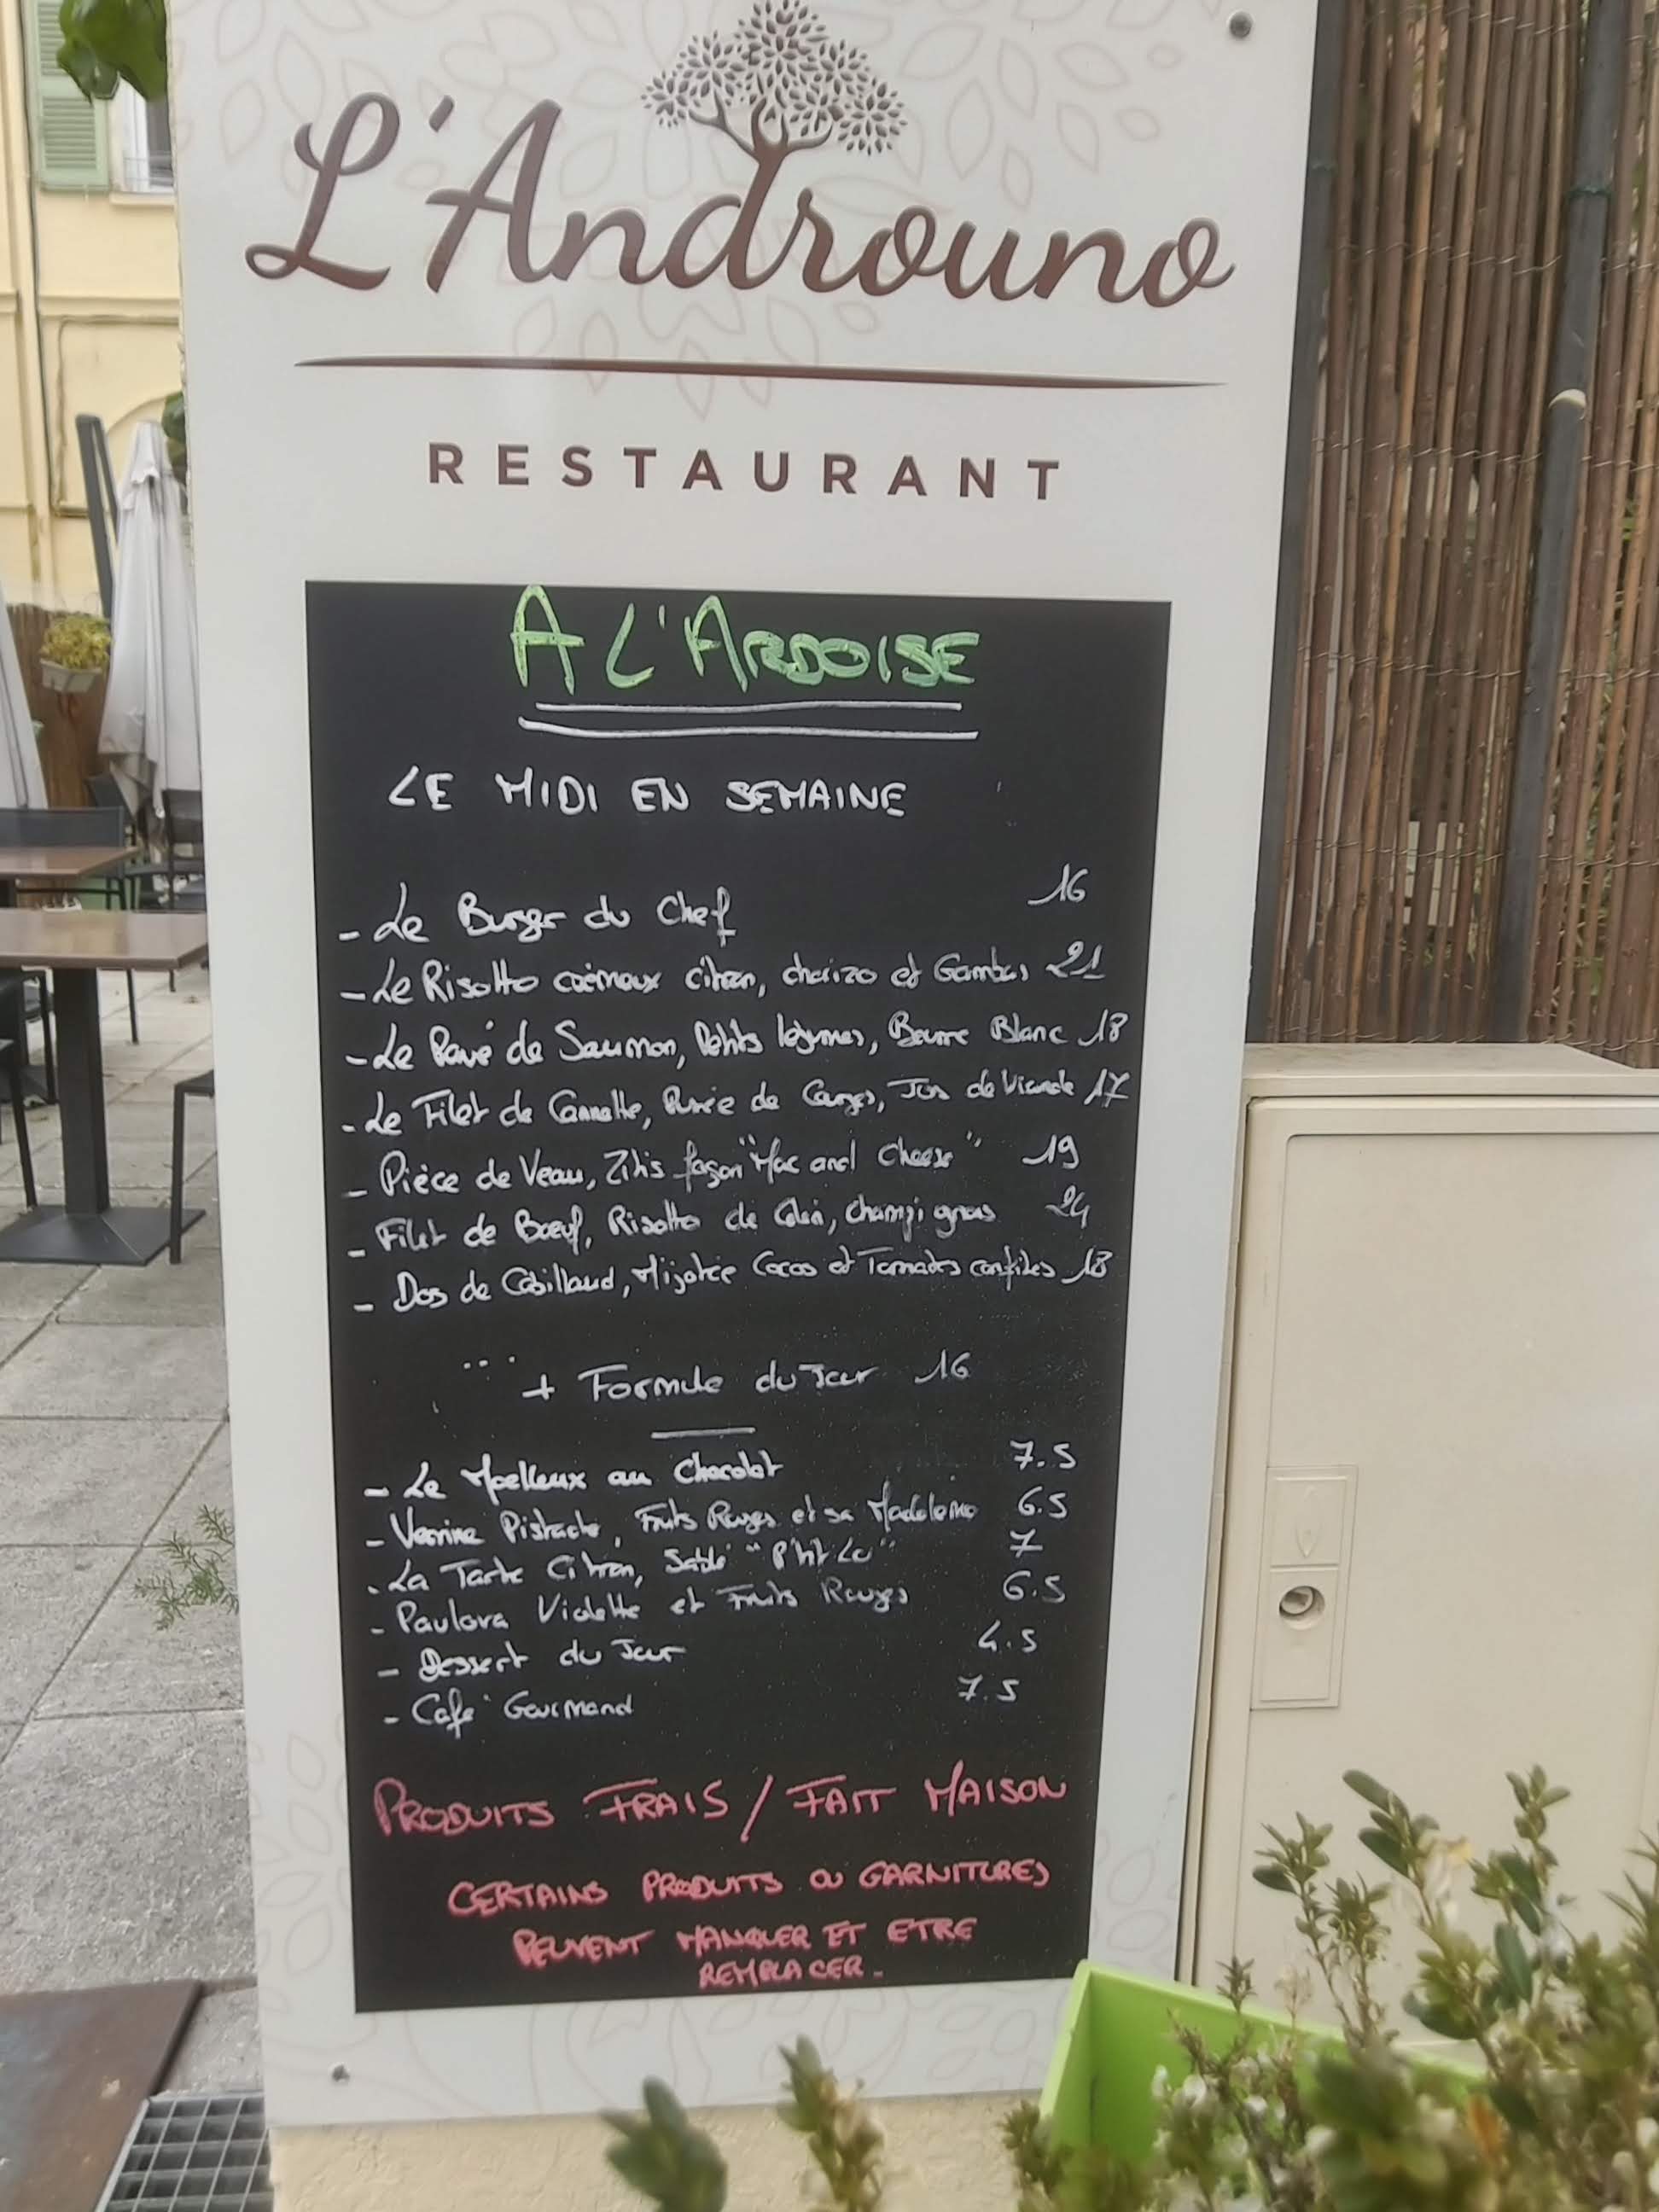 L'Androuno
RESTAURANT
A L'ARDOISE
LE MIDI EN SEMAINE
- Le Burger du Chef 16
- Le Risotto crémeux citron, chorizo et Gambas 21
- Le Pavé de Saumon, Petits légumes, Beurre Blanc 18
- Le Filet de Cannette, Purée de Courges, Jus de Viande 17
- Pièce de Veau, Zitis façon "Mac and Cheese" 19
- Filet de Bœuf, Risotto de Céleri, champignons 24
- Dos de Cabillaud, Mijotée Cocos et Tomates confites 18
... + Formule du Jour 16
- Le Moelleux au Chocolat 7.5
- Verrine Pistache, Fruits Rouges et sa Madeleine 6.5
- La Tarte Citron, Sablé "P'tit Lu" 7
- Paulova Violette et Fruits Rouges 6.5
- Dessert du Jour 4.5
- Café Gourmand 7.5
PRODUITS FRAIS / FAIT MAISON
CERTAINS PRODUITS OU GARNITURES
PEUVENT MANQUER ET ETRE
REMPLACER.